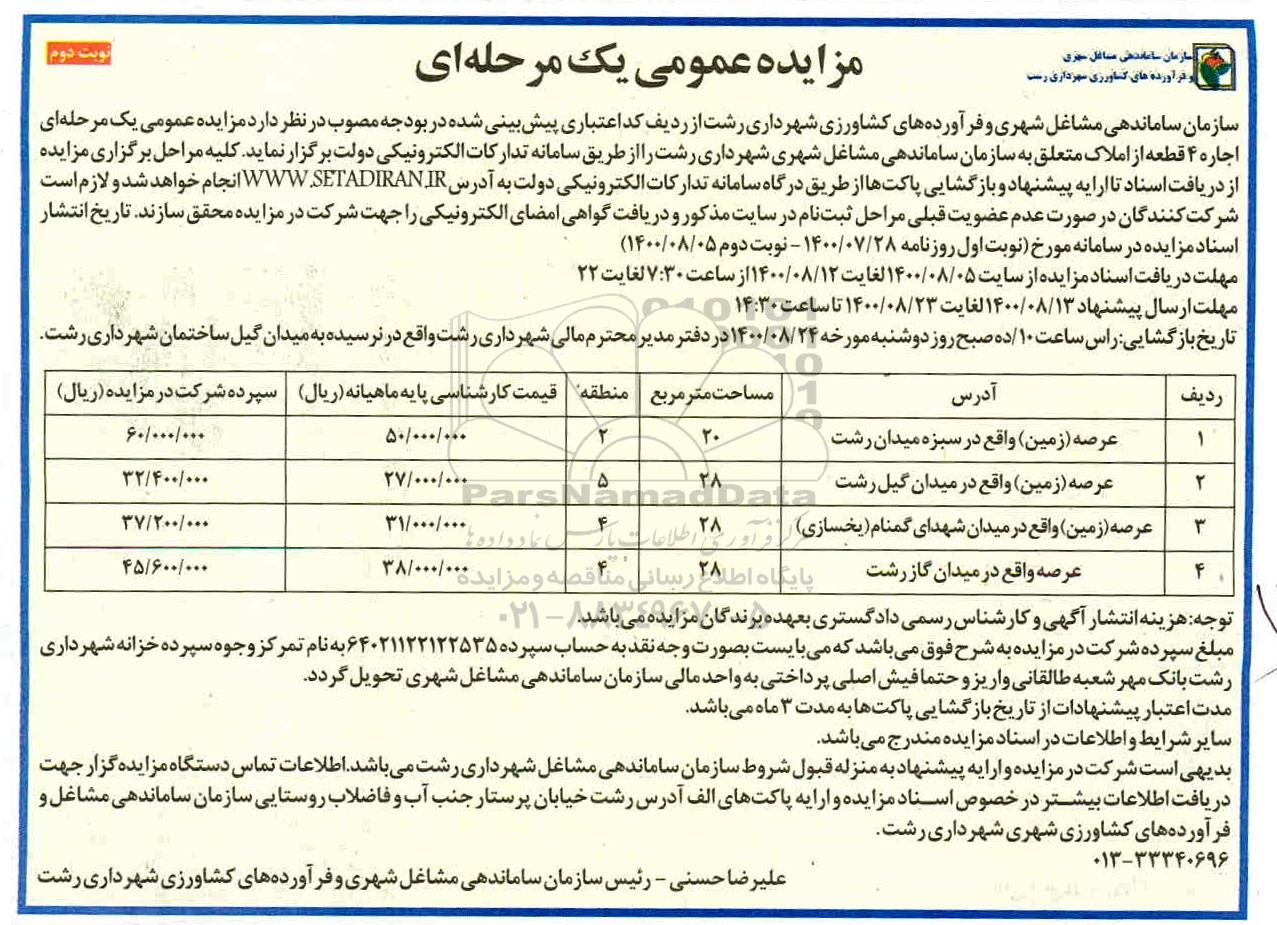 نوبت دوم
مزایده عمومی یک مرحله‌ای
سازمان ساماندهی مشاغل شهری
و فرآورده های کشاورزی شهرداری رشت
سازمان ساماندهی مشاغل شهری و فرآورده‌های کشاورزی شهرداری رشت از ردیف کد اعتباری پیش‌بینی شده در بودجه مصوب در نظر دارد مزایده عمومی یک مرحله‌ای
اجاره ۴ قطعه از املاک متعلق به سازمان ساماندهی مشاغل شهری شهرداری رشت را از طریق سامانه تدارکات الکترونیکی دولت برگزار نماید. کلیه مراحل برگزاری مزایده
از دریافت اسناد تا ارایه پیشنهاد و بازگشایی پاکت‌ها از طریق درگاه سامانه تدارکات الکترونیکی دولت به آدرس WWW.SETADIRAN.IR انجام خواهد شد و لازم است
شرکت کنندگان در صورت عدم عضویت قبلی مراحل ثبت‌نام در سایت مذکور و دریافت گواهی امضای الکترونیکی را جهت شرکت در مزایده محقق سازند. تاریخ انتشار
اسناد مزایده در سامانه مورخ (نوبت اول روزنامه ۱۴۰۰/۰۷/۲۸ - نوبت دوم ۱۴۰۰/۰۸/۰۵)
مهلت دریافت اسناد مزایده از سایت ۱۴۰۰/۰۸/۰۵ لغایت ۱۴۰۰/۰۸/۱۲ از ساعت ۷:۳۰ لغایت ۲۲
مهلت ارسال پیشنهاد ۱۴۰۰/۰۸/۱۳ لغایت ۱۴۰۰/۰۸/۲۳ تا ساعت ۱۴:۳۰
تاریخ بازگشایی: راس ساعت ۱۰/ده صبح روز دوشنبه مورخه ۱۴۰۰/۰۸/۲۴ در دفتر مدیر محترم مالی شهرداری رشت واقع در نرسیده به میدان گیل ساختمان شهرداری رشت.
ردیف آدرس مساحت متر مربع منطقه قیمت کارشناسی پایه ماهیانه (ریال) سپرده شرکت در مزایده (ریال)
۱ عرصه (زمین) واقع در سبزه میدان رشت ۲۰ ۲ ۵۰/۰۰۰/۰۰۰ ۶۰/۰۰۰/۰۰۰
۲ عرصه (زمین) واقع در میدان گیل رشت ۲۸ ۵ ۲۷/۰۰۰/۰۰۰ ۳۲/۴۰۰/۰۰۰
۳ عرصه (زمین) واقع در میدان شهدای گمنام (یخسازی) ۲۸ ۴ ۳۱/۰۰۰/۰۰۰ ۳۷/۲۰۰/۰۰۰
۴ عرصه واقع در میدان گاز رشت ۲۸ ۴ ۳۸/۰۰۰/۰۰۰ ۴۵/۶۰۰/۰۰۰
ParsNamadData
مرکز فرآوری اطلاعات پارس نماد داده ها
پایگاه اطلاع رسانی مناقصه و مزایده
۰۲۱-۸۸۳۴۹۶۷۰-۵
توجه: هزینه انتشار آگهی و کارشناس رسمی دادگستری بعهده برندگان مزایده می‌باشد.
مبلغ سپرده شرکت در مزایده به شرح فوق می‌باشد که می‌بایست بصورت وجه نقد به حساب سپرده ۶۴۰۲۱۱۲۲۱۲۲۵۳۵ به نام تمرکز وجوه سپرده خزانه شهرداری
رشت بانک مهر شعبه طالقانی واریز و حتما فیش اصلی پرداختی به واحد مالی سازمان ساماندهی مشاغل شهری تحویل گردد.
مدت اعتبار پیشنهادات از تاریخ بازگشایی پاکت‌ها به مدت ۳ ماه می‌باشد.
سایر شرایط و اطلاعات در اسناد مزایده مندرج می‌باشد.
بدیهی است شرکت در مزایده و ارایه پیشنهاد به منزله قبول شروط سازمان ساماندهی مشاغل شهرداری رشت می‌باشد. اطلاعات تماس دستگاه مزایده گزار جهت
دریافت اطلاعات بیشتر در خصوص اسناد مزایده و ارایه پاکت‌های الف آدرس رشت خیابان پرستار جنب آب و فاضلاب روستایی سازمان ساماندهی مشاغل و
فرآورده‌های کشاورزی شهری شهرداری رشت.
۰۱۳-۳۳۳۴۰۶۹۶
علیرضا حسنی - رئیس سازمان ساماندهی مشاغل شهری و فرآورده‌های کشاورزی شهرداری رشت